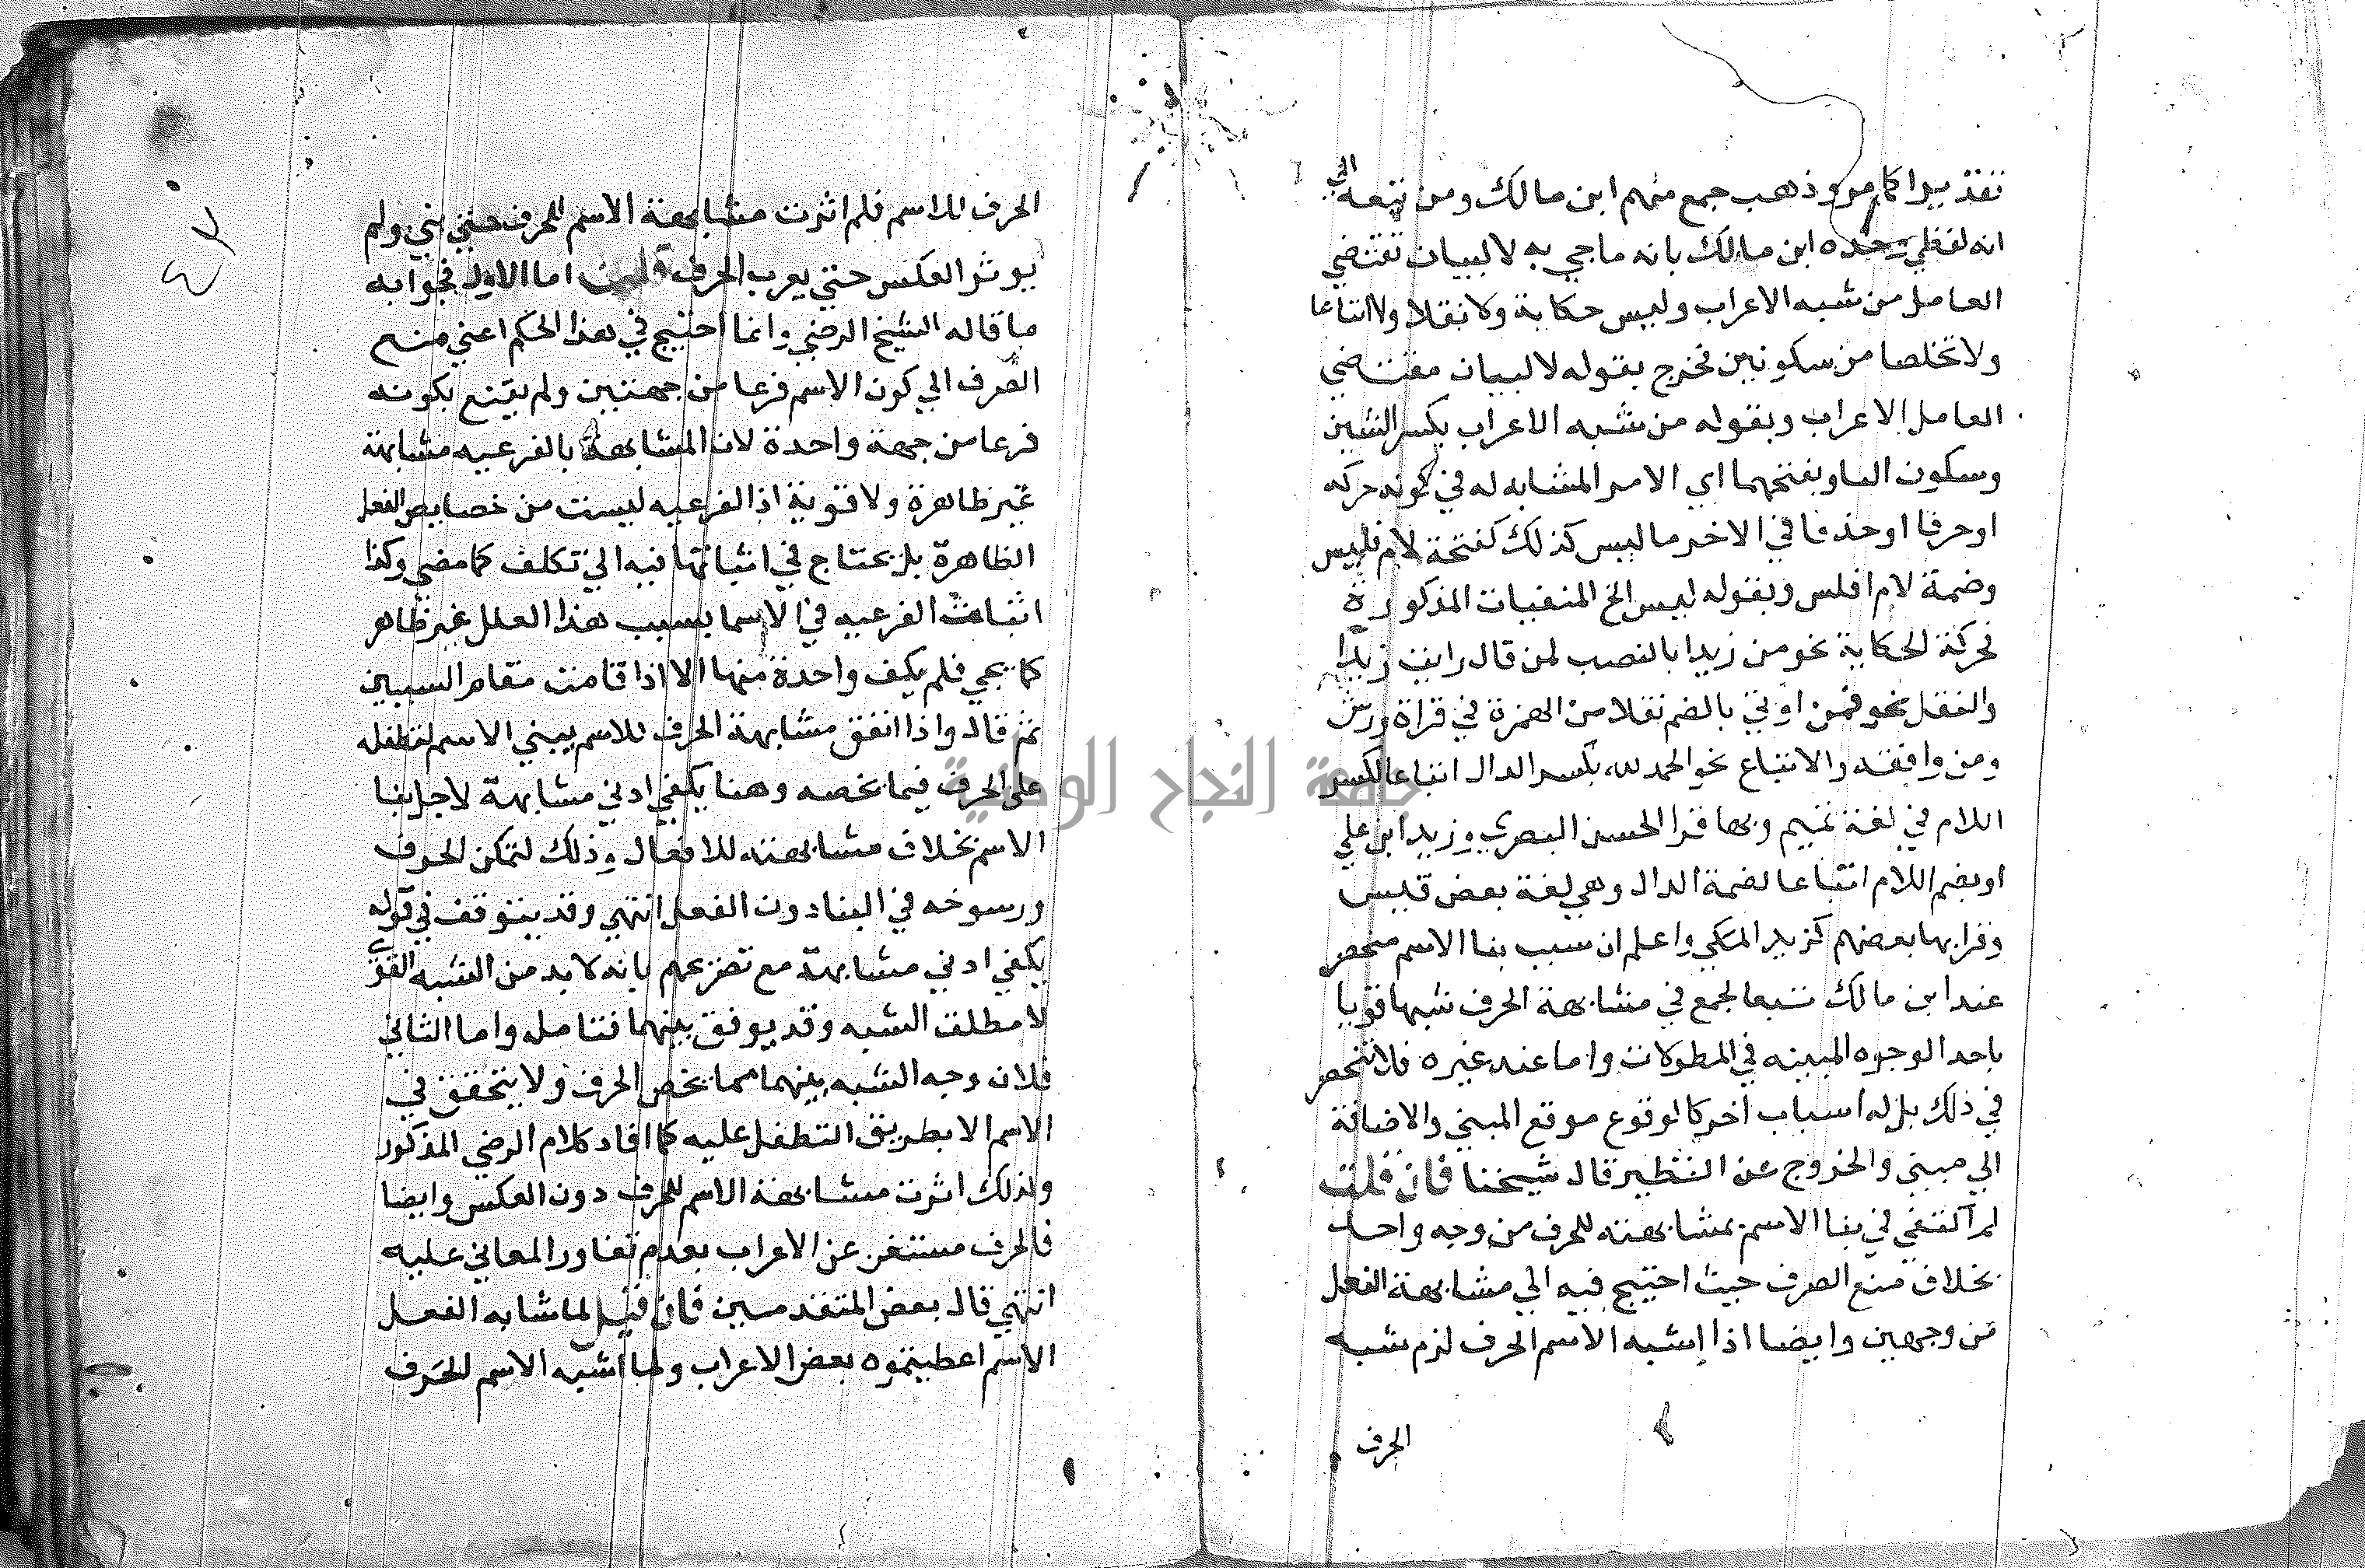 تقديرا كما مر وذهب جمع منهم ابن مالك ومن تبعه الي
انه لفظي وحده ابن مالك بانه ما جي به لا لبيان مقتضي
العامل من شبه الاعراب وليس حكاية ولا نقلا ولا اتباعا
ولا تخلصا من سكونين فخرج بقوله لا لبيان مقتضي
العامل الاعراب وبقوله من شبه الاعراب بكسر الشين
وسكون البا وبفتحهما اي الامر المشابه له في كونه حركه
او حرفا او حذفا في الاخر ما ليس كذلك كفتحة لام فليس
وضمة لام افلس وبقوله ليس الخ المنفيات المذكورة
فحركة الحكاية نحو من زيدا بالنصب لمن قال رايت زيدا
والنقل نحو فمن اوتي بالضم نقلا من الهمزة في قراة ورش
ومن وافقه والاتباع نحو الحمد لله بكسر الدال اتباعا لكسر
اللام في لغة تميم وبها قرا الحسن البصري وزيد ابن علي
او بضم اللام اتباعا لضمة الدال وهي لغة بعض قيس
وقرا بها بعضهم كزيد المكي واعلم ان سبب بنا الاسم منحصر
عند ابن مالك تبعا لجمع في مشابهة الحرف شبها قويا
باحد الوجوه المبينه في المطولات واما عند غيره فلا تنحصر
في ذلك بل له اسباب اخر كالوقوع موقع المبني والاضافة
الي مبني والخروج عن النظير قال شيخنا فان قلت
لم اكتفي في بنا الاسم بمشابهته للحرف من وجه واحد
بخلاف منع الصرف حيث احتيج فيه الي مشابهة الفعل
من وجهين وايضا اذا اشبه الاسم الحرف لزم شبه
الحرف
الحرف للاسم فلم اثرت مشابهة الاسم للحرف حتي بني ولم
يوثر العكس حتي يعرب الحرف قلت اما الاول فجوابه
ما قاله الشيخ الرضي وانما احتيج في هذا الحكم اعني منع
الصرف الي كون الاسم فرعا من جهتين ولم يقنع بكونه
فرعا من جهة واحدة لان المشابهة بالفرعيه مشابهة
غير ظاهرة ولا قوية اذ الفرعيه ليست من خصايص الفعل
الظاهرة بل يحتاج في اثباتها فيه الي تكلف كما مضي وكذا
اثبات الفرعيه في الاسما بسبب هذا العلل غير ظاهر
كما يجي فلم يكف واحدة منها الا اذا قامت مقام السببين
ثم قال واذا اتفق مشابهة الحرف للاسم يبني الاسم لتطفله
علي الحرف فيما يخصه وهنا يكفي ادني مشابهة لاجل بنا
الاسم بخلاف مشابهته للافعال وذلك لتمكن الحرف
ورسوخه في البنا دون الفعل انتهي وقد يتوقف في قوله
يكفي ادني مشابهة مع تصريحهم بانه لا بد من الشبه القوي
لا مطلق الشبه وقد يوفق بينهما فتامله واما الثاني
فلان وجه الشبه بينهما مما يخص الحرف ولا يتحقق في
الاسم الا بطريق التطفل عليه كما افاد كلام الرضي المذكور
ولذلك اثرت مشابهة الاسم للحرف دون العكس وايضا
فالحرف مستغن عن الاعراب بعدم تعاور المعاني عليه
انتهي قال بعض المتقدمين فان قيل لما شابه الفعل
الاسم اعطيتموه بعض الاعراب ولما اشبه الاسم الحرف
جامعة النجاح الوطنية